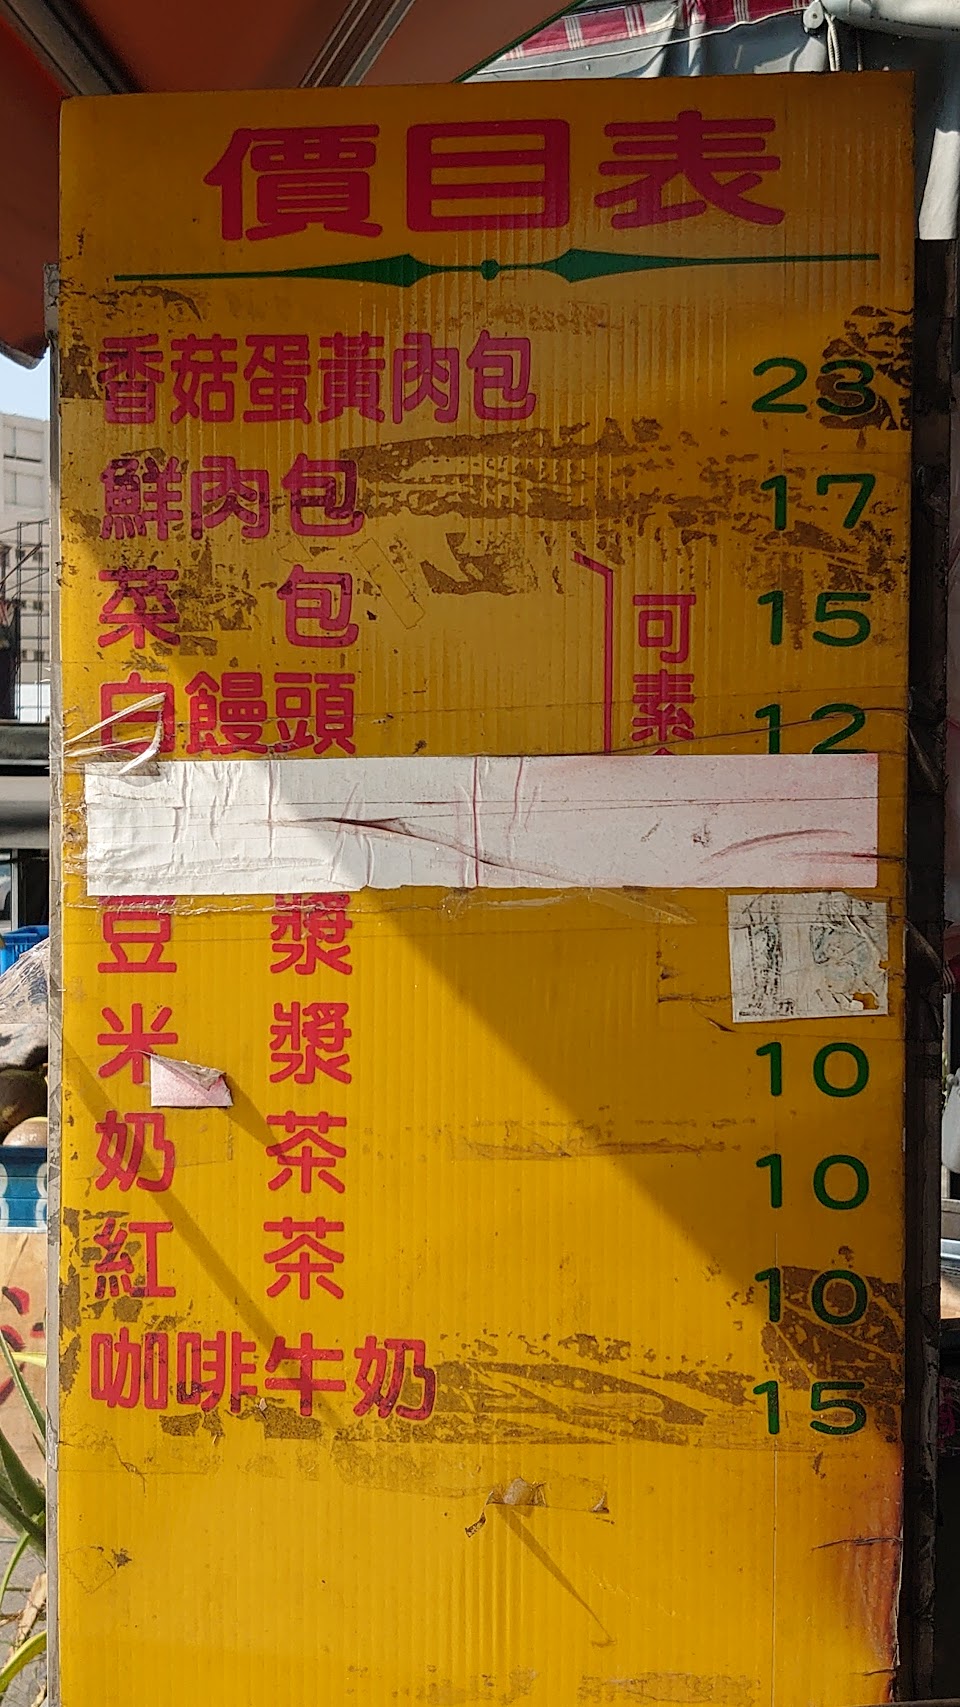 價目表
香菇蛋黃肉包 23
鮮肉包 17
菜包 15
可素
白饅頭 12
豆漿
米漿 10
奶茶 10
紅茶 10
咖啡牛奶 15